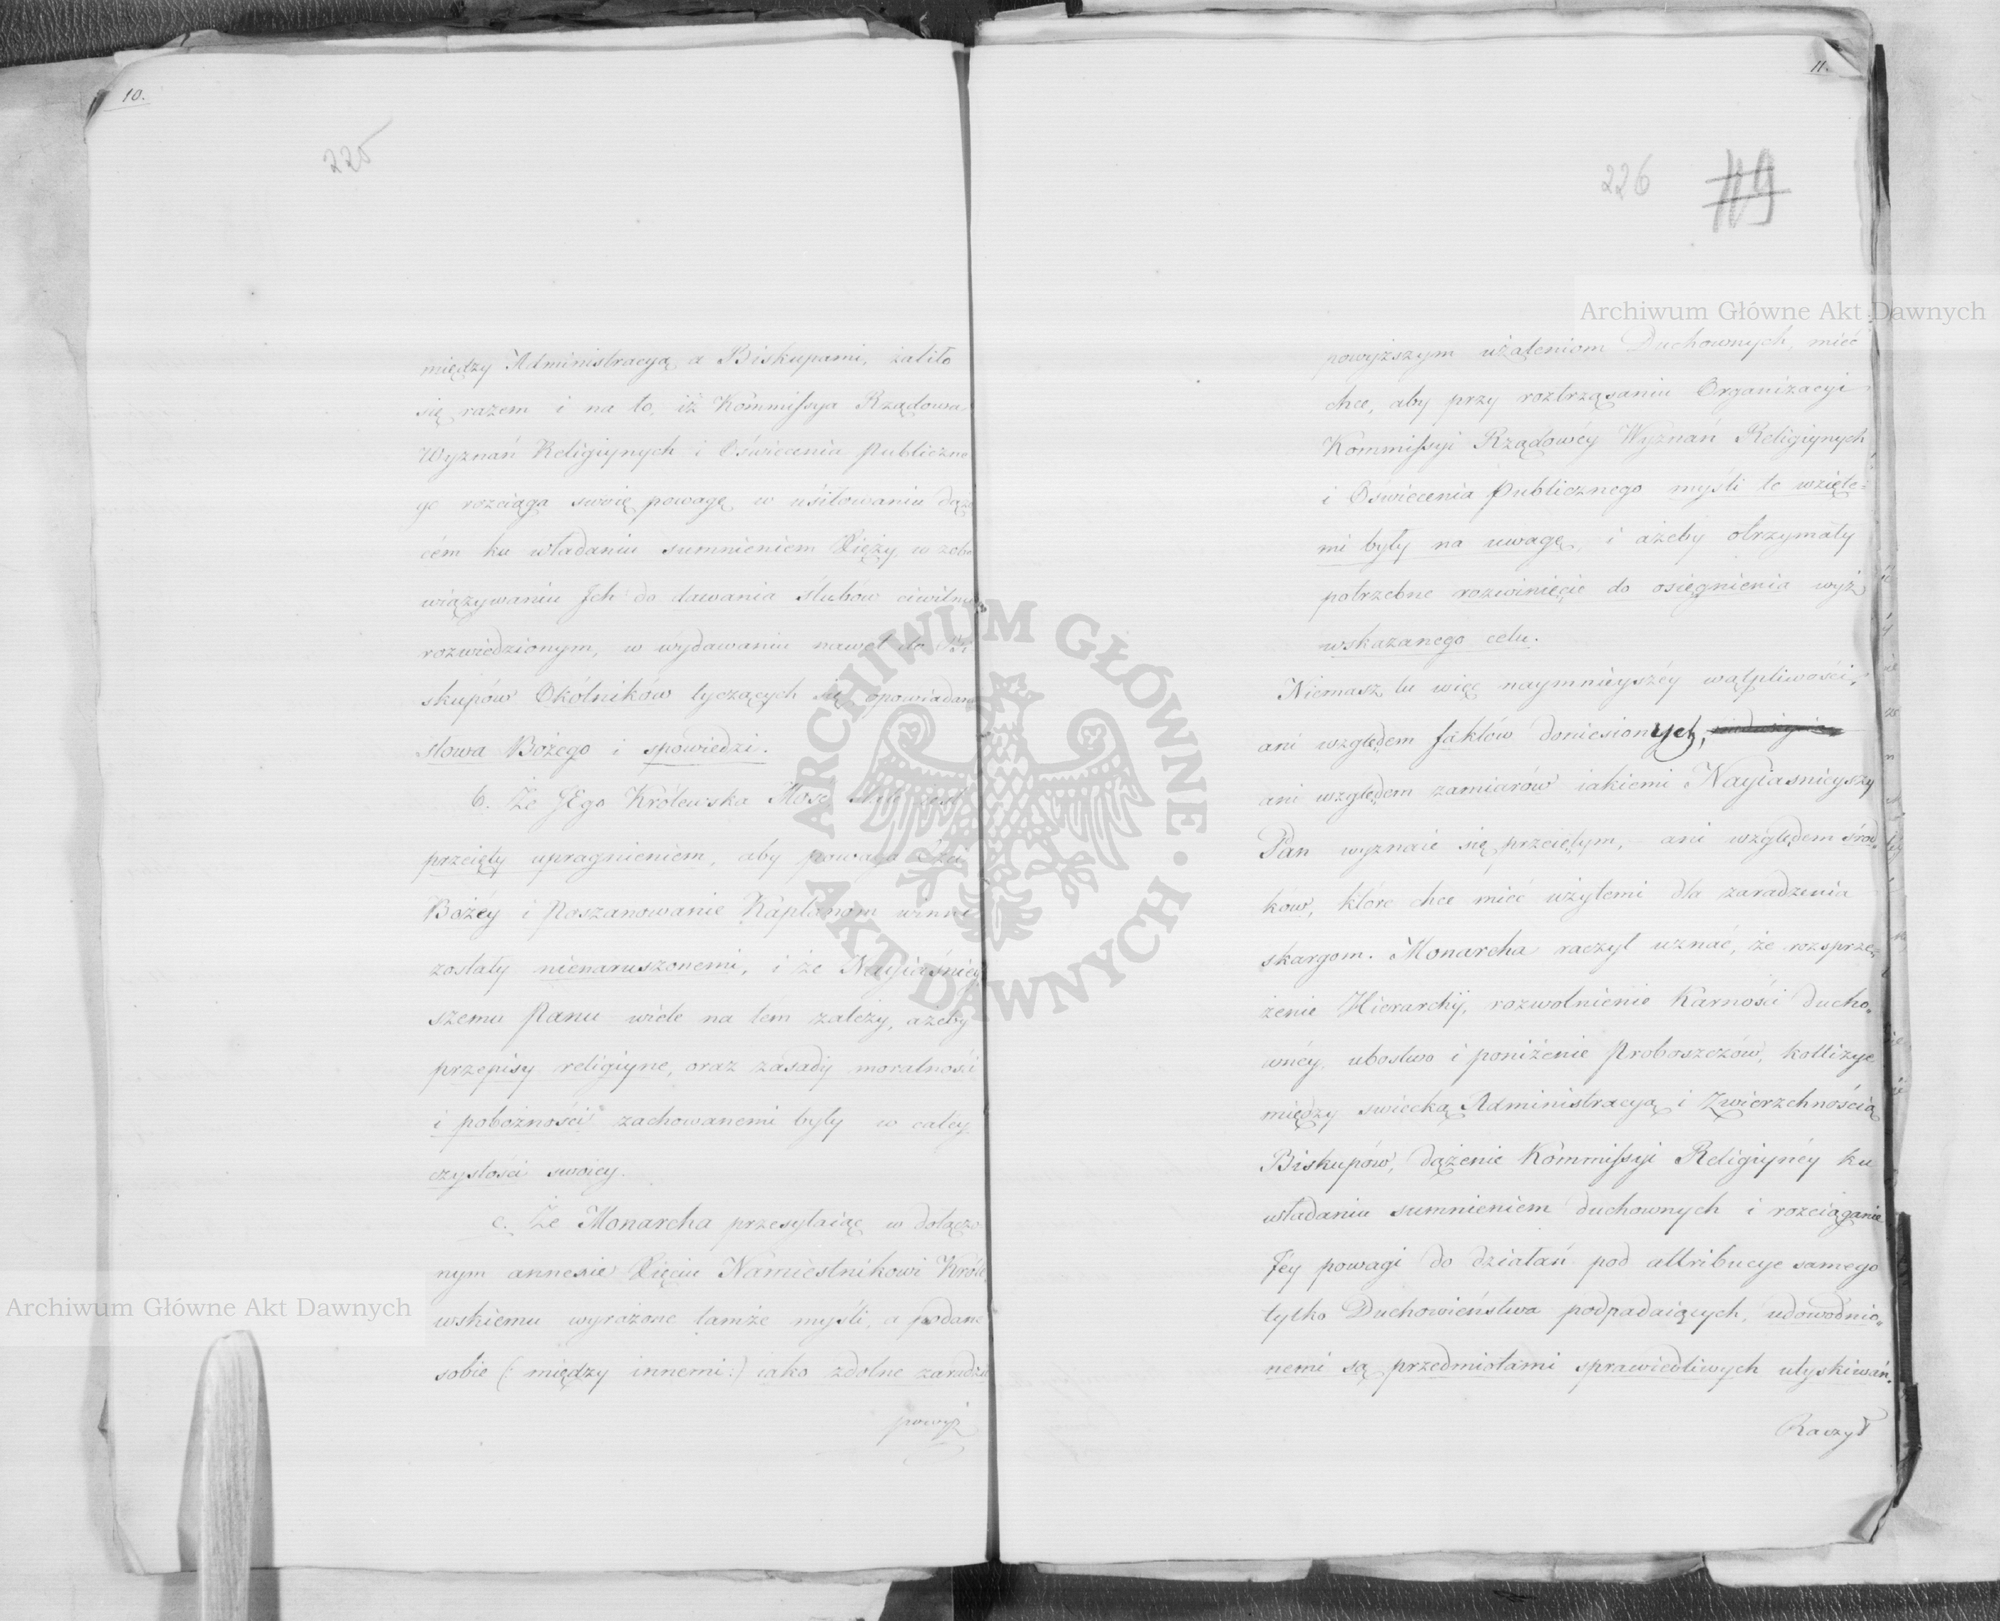 10.
225
między Administracyą a Biskupami, żaliło
się razem i na to, iż Kommissya Rządowa
Wyznań Religiynych i Oświecenia Publiczne
go rozciąga swoię powagę w usiłowaniu dążą
cém ku władaniu sumnieniem Xięży, w zobo
wiązywaniu Ich do dawania ślubów cywilnie
rozwiedzionym, w wydawaniu nawet do Bi
skupów Okólników tyczących się opowiadania
słowa Bożego i spowiedzi.
b. Że JEgo Królewska Mość jest
przeięty upragnieniem, aby powaga
Bożéy i Poszanowanie Kapłanom winne
zostały nienaruszonemi, i że Nayiaśniey
szemu Panu wiele na tém zależy, ażeby
przepisy religiyne, oraz zasady moralności
i pobożności zachowanemi były w całey
czystości swoiey.
c. Że Monarcha przesyłaiąc w dołączo
nym annexie Xięciu Namiestnikowi Króle
wskiemu wyrażone tamże myśli, a podane
sobie (: między innemi :) iako zdolne zaradzić
powyż
11.
226
119
Archiwum Główne Akt Dawnych
powyższym użaleniom Duchownych, mieć
chce, aby przy roztrząsaniu Organizacyi
Kommissyi Rządowéy Wyznań Religiynych
i Oświecenia Publicznego myśli te wzięte=
mi były na uwagę, i ażeby otrzymały
potrzebne rozwinięcie do osięgnienia wyż
wskazanego celu.
Niemasz tu więc naymnieyszéy wątpliwości,
ani względem faktów doniesionych,
ani względem zamiarów iakiemi Nayiaśnieyszy
Pan wyznaie się przeiętym, ani względem środ=
ków, które chce mieć użytemi dla zaradzenia
skargom. Monarcha raczył uznać, że rozsprzę=
żenie Hierarchij, rozwolnienie Karności ducho=
wnéy, ubóstwo i poniżenie Proboszczów, kollizye
między świecką Administracyą i Zwierzchnością
Biskupów, dążenie Kommissyi Religiynéy ku
władaniu sumnieniem duchownych i rozciąganie
Jéy powagi do działań pod attribucye samego
tylko Duchowieństwa podpadaiących, udowodnio=
nemi są przedmiotami sprawiedliwych utyskiwań.
Raczył
Archiwum Główne Akt Dawnych
ARCHIWUM GŁÓWNE • AKT DAWNYCH •